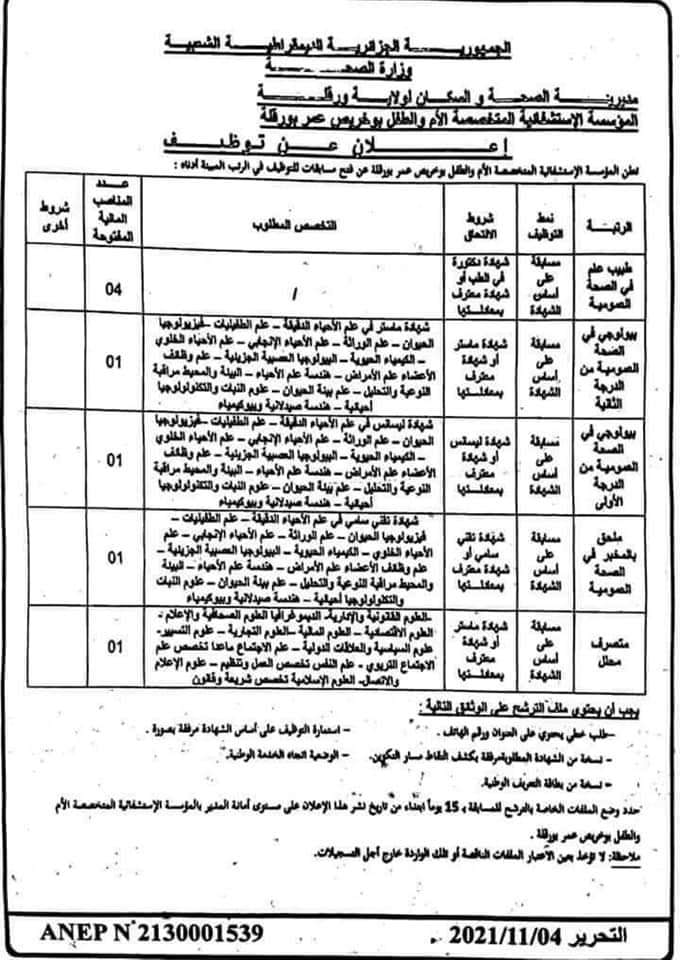 الجمهورية الجزائرية الديمقراطية الشعبية
وزارة الصحة
مديرية الصحة و السكان لولاية ورقلة
المؤسسة الإستشفائية المتخصصة الأم والطفل بوخريص عمر بورقلة
إعلان عن توظيف
تعلن المؤسسة الإستشفائية المتخصصة الأم والطفل بوخريص عمر بورقلة عن فتح مسابقات للتوظيف في الرتب المبينة أدناه :
الرتبة
نمط
التوظيف
شروط
الالتحاق
التخصص المطلوب
عدد
المناصب
المالية
المفتوحة
شروط
أخرى
طبيب عام
في الصحة
العمومية
مسابقة
على
أساس
الشهادة
شهادة دكتورة
في الطب أو
شهادة معترف
بمعادلتها
/
04
بيولوجي في
الصحة
العمومية من
الدرجة
الثانية
مسابقة
على
أساس
الشهادة
شهادة ماستر
أو شهادة
معترف
بمعادلتها
شهادة ماستر في علم الأحياء الدقيقة – علم الطفيليات –فيزيولوجيا
الحيوان – علم الوراثة – علم الأحياء الإنجابي – علم الأحياء الخلوي
– الكيمياء الحيوية – البيولوجيا العصبية الجزيئية – علم وظائف
الأعضاء علم الأمراض – هندسة علم الأحياء – البيئة والمحيط مراقبة
النوعية والتحليل – علم بيئة الحيوان – علوم النبات والتكنولولوجيا
أحيائية – هندسة صيدلانية وبيوكيمياء
01
بيولوجي في
الصحة
العمومية من
الدرجة
الأولى
مسابقة
على
أساس
الشهادة
شهادة ليسانس
أو شهادة
معترف
بمعادلتها
شهادة ليسانس في علم الأحياء الدقيقة – علم الطفيليات –فيزيولوجيا
الحيوان – علم الوراثة – علم الأحياء الإنجابي – علم الأحياء الخلوي
– الكيمياء الحيوية – البيولوجيا العصبية الجزيئية – علم وظائف
الأعضاء علم الأمراض – هندسة علم الأحياء – البيئة والمحيط مراقبة
النوعية والتحليل – علم بيئة الحيوان – علوم النبات والتكنولولوجيا
أحيائية – هندسة صيدلانية وبيوكيمياء
01
ملحق
بالمخبر في
الصحة
العمومية
مسابقة
على
أساس
الشهادة
شهادة تقني
سامي أو
شهادة معترف
بمعادلتها
شهادة تقني سامي في علم الأحياء الدقيقة – علم الطفيليات –
فيزيولوجيا الحيوان – علم الوراثة – علم الأحياء الإنجابي – علم
الأحياء الخلوي – الكيمياء الحيوية – البيولوجيا العصبية الجزيئية –
علم وظائف الأعضاء علم الأمراض – هندسة علم الأحياء – البيئة
والمحيط مراقبة النوعية والتحليل – علم بيئة الحيوان – علوم النبات
والتكنولولوجيا أحيائية – هندسة صيدلانية وبيوكيمياء
01
متصرف
محلل
مسابقة
على
أساس
الشهادة
شهادة ماستر
أو شهادة
معترف
بمعادلتها
-العلوم القانونية والإدارية- الديموغرافيا العلوم الصحافية والإعلام-
العلوم الاقتصادية – العلوم المالية –العلوم التجارية – علوم التسيير-
علوم السياسية والعلاقات الدولية – علم الاجتماع ماعدا تخصص علم
الاجتماع التربوي – علم النفس تخصص العمل وتنظيم – علوم الإعلام
والاتصال- العلوم الإسلامية تخصص شريعة وقانون
01
يجب ان يحتوي ملف الترشح على الوثائق التالية :
–طلب خطي يحتوي على العنوان ورقم الهاتف . – استمارة التوظيف على أساس الشهادة مرفقة بصورة .
– نسخة من الشهادة المطلوبةمرفقة بكشف النقاط مسار التكوين. – الوضعية اتجاه الخدمة الوطنية.
– نسخة من بطاقة التعريف الوطنية.
حدد وضع الملفات الخاصة بالترشح للمسابقة بـ 15 يوماً ابتداء من تاريخ نشر هذا الإعلان على مستوى أمانة المدير بالمؤسسة الإستشفائية المتخصصة الأم
والطفل بوخريص عمر بورقلة .
ملاحظة: لا تؤخذ بعين الأعتبار الملفات الناقصة أو تلك الواردة خارج أجل التسجيلات.
التحرير 2021/11/04
ANEP N 2130001539